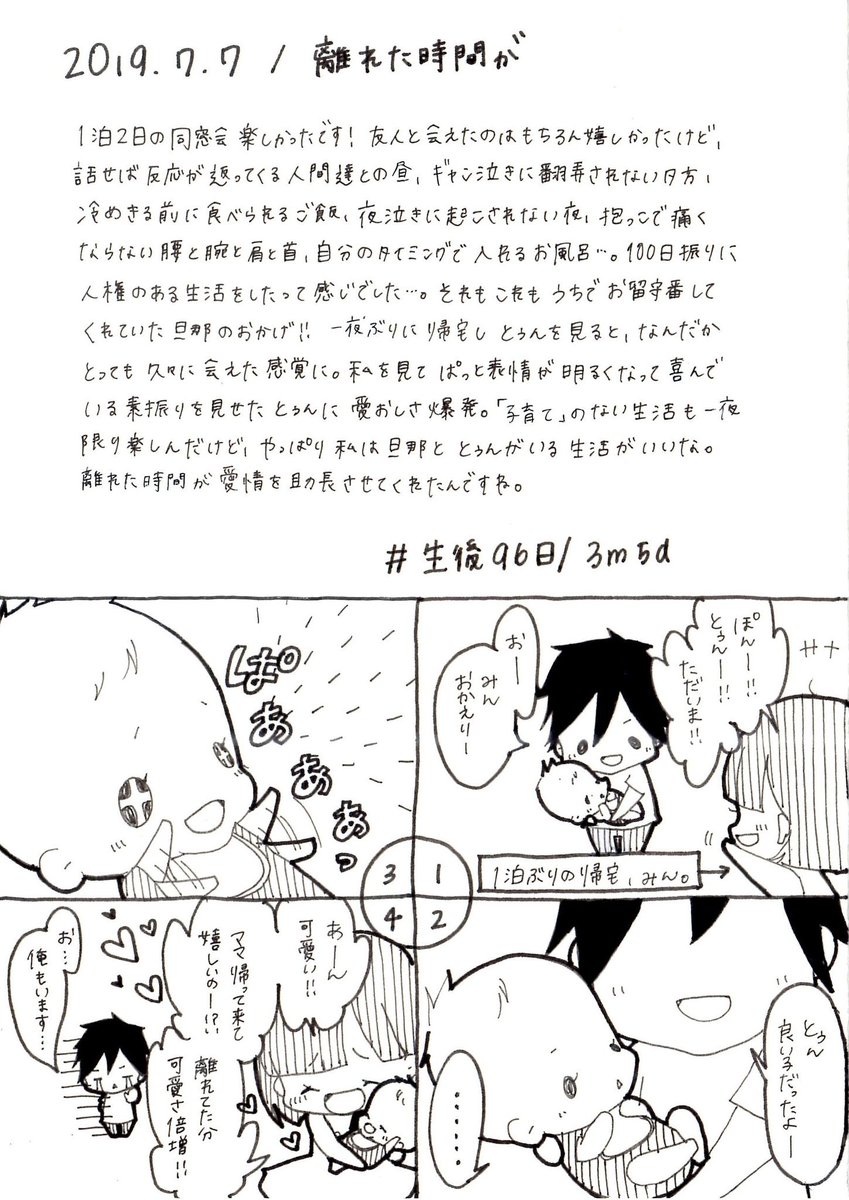 2019.7.7 / 離れた時間が
1泊2日の同窓会楽しかったです！友人と会えたのはもちろん嬉しかったけど、
話せば反応が返ってくる人間達との昼、ギャン泣きに翻弄されない夕方、
冷めきる前に食べられるご飯、夜泣きに起こされない夜、抱っこで痛く
ならない腰と腕と肩と首、自分のタイミングで入れるお風呂…。100日振りに
人権のある生活をしたって感じでした…。それもこれもうちでお留守番して
くれていた旦那のおかげ!! 一夜ぶりに帰宅しとぅんを見ると、なんだか
とっても久々に会えた感覚に。私を見てぱっと表情が明るくなって喜んで
いる素振りを見せたとぅんに愛おしさ爆発。「子育て」のない生活も一夜
限り楽しんだけど、やっぱり私は旦那ととぅんがいる生活がいいな。
離れた時間が愛情を助長させてくれたんですね。
#生後96日/3m5d
ぽんー!!
とぅんー!!
ただいま!!
サナ
おー
みん
おかえりー
1泊ぶりの帰宅、みん。
1
とぅん
良い子だったよー
……
2
ぱぁぁぁっ
3
あーん
可愛い!!
ママ帰って来て
嬉しいのー!?
離れてた分
可愛さ倍増!!
お…
俺もいます…
4